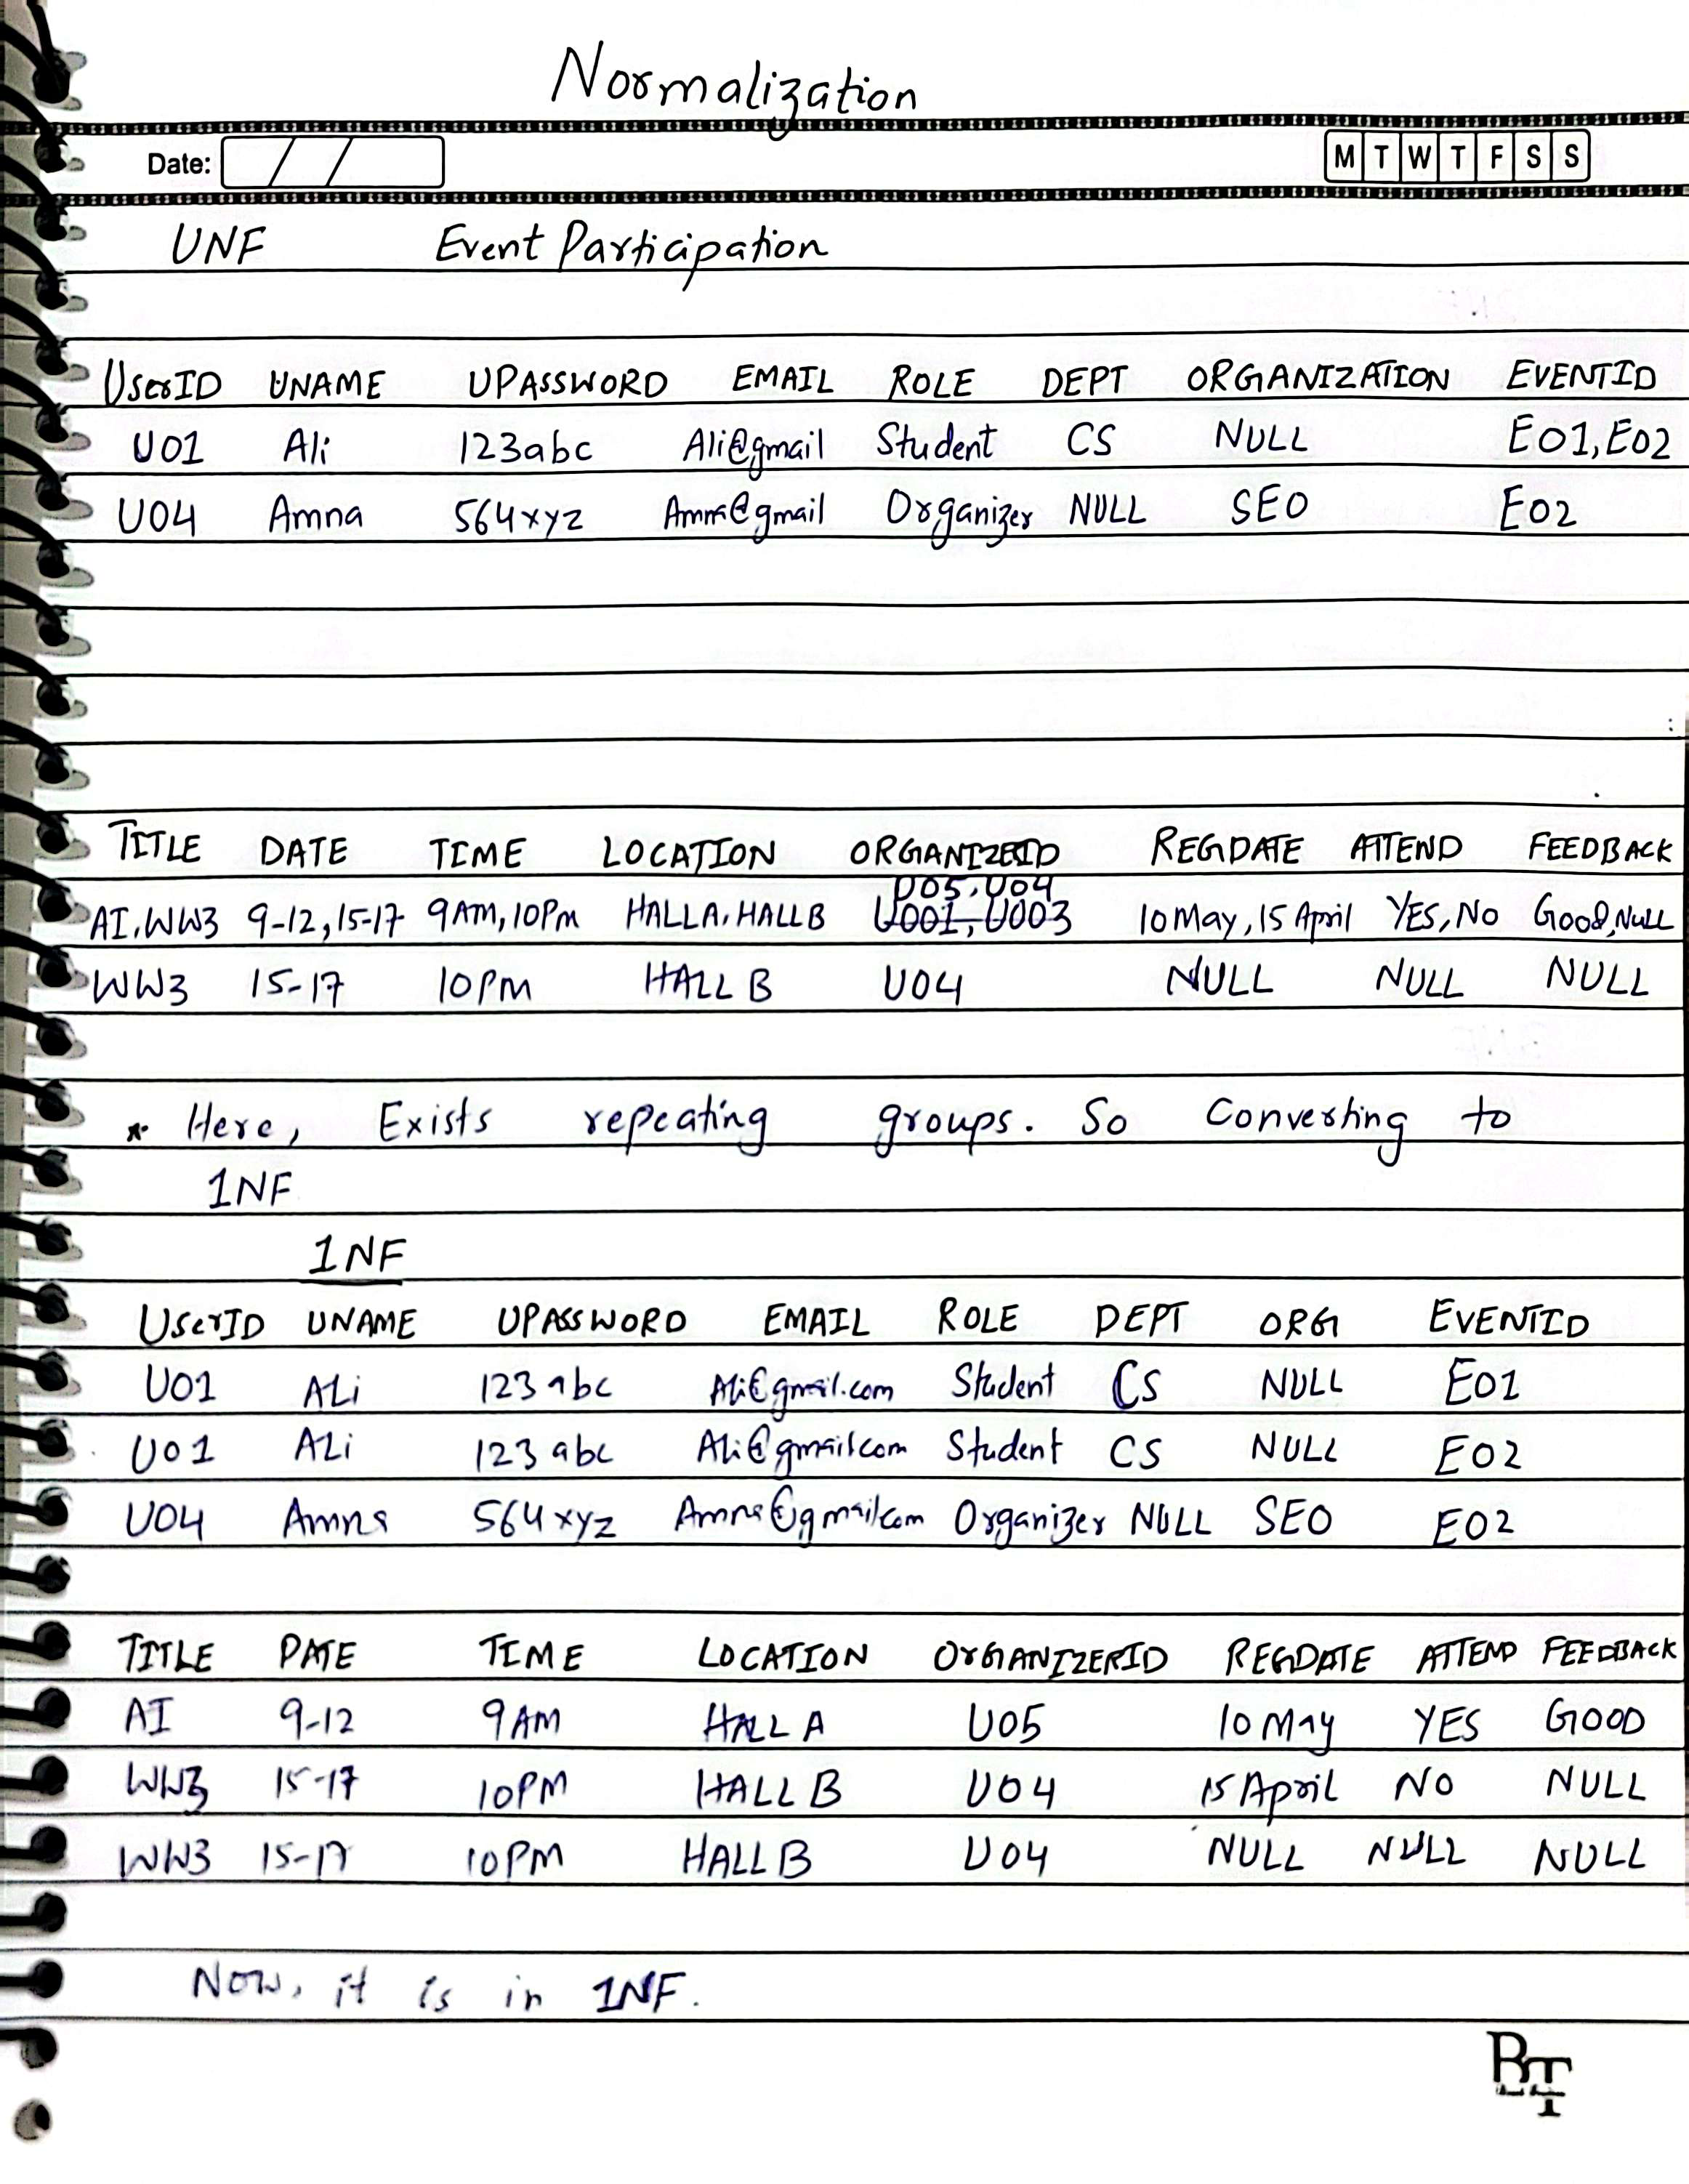 Normalization
Date: / / M T W T F S S
UNF Event Participation
UserID UNAME UPASSWORD EMAIL ROLE DEPT ORGANIZATION EVENTID
U01 Ali 123abc Ali@gmail Student CS NULL E01,E02
U04 Amna 564xyz Amna@gmail Organizer NULL SEO E02
TITLE DATE TIME LOCATION ORGANIZERID REGDATE ATTEND FEEDBACK
U05,U04
AI,WW3 9-12,15-17 9AM,10PM HALLA,HALLB U001,U003 10May,15April YES,No Good,NULL
WW3 15-17 10PM HALL B U04 NULL NULL NULL
* Here, Exists repeating groups. So Converting to
1NF
1NF
UserID UNAME UPASSWORD EMAIL ROLE DEPT ORG EVENTID
U01 ALi 123abc Ali@gmail.com Student CS NULL E01
U01 ALi 123abc Ali@gmailcom Student CS NULL E02
U04 Amna 564xyz Amna@gmailcom Organizer NULL SEO E02
TITLE DATE TIME LOCATION ORGANIZERID REGDATE ATTEND FEEDBACK
AI 9-12 9AM HALL A U05 10 May YES GOOD
WW3 15-17 10PM HALL B U04 15 April NO NULL
WW3 15-17 10PM HALL B U04 NULL NULL NULL
Now, it is in 1NF.
BT